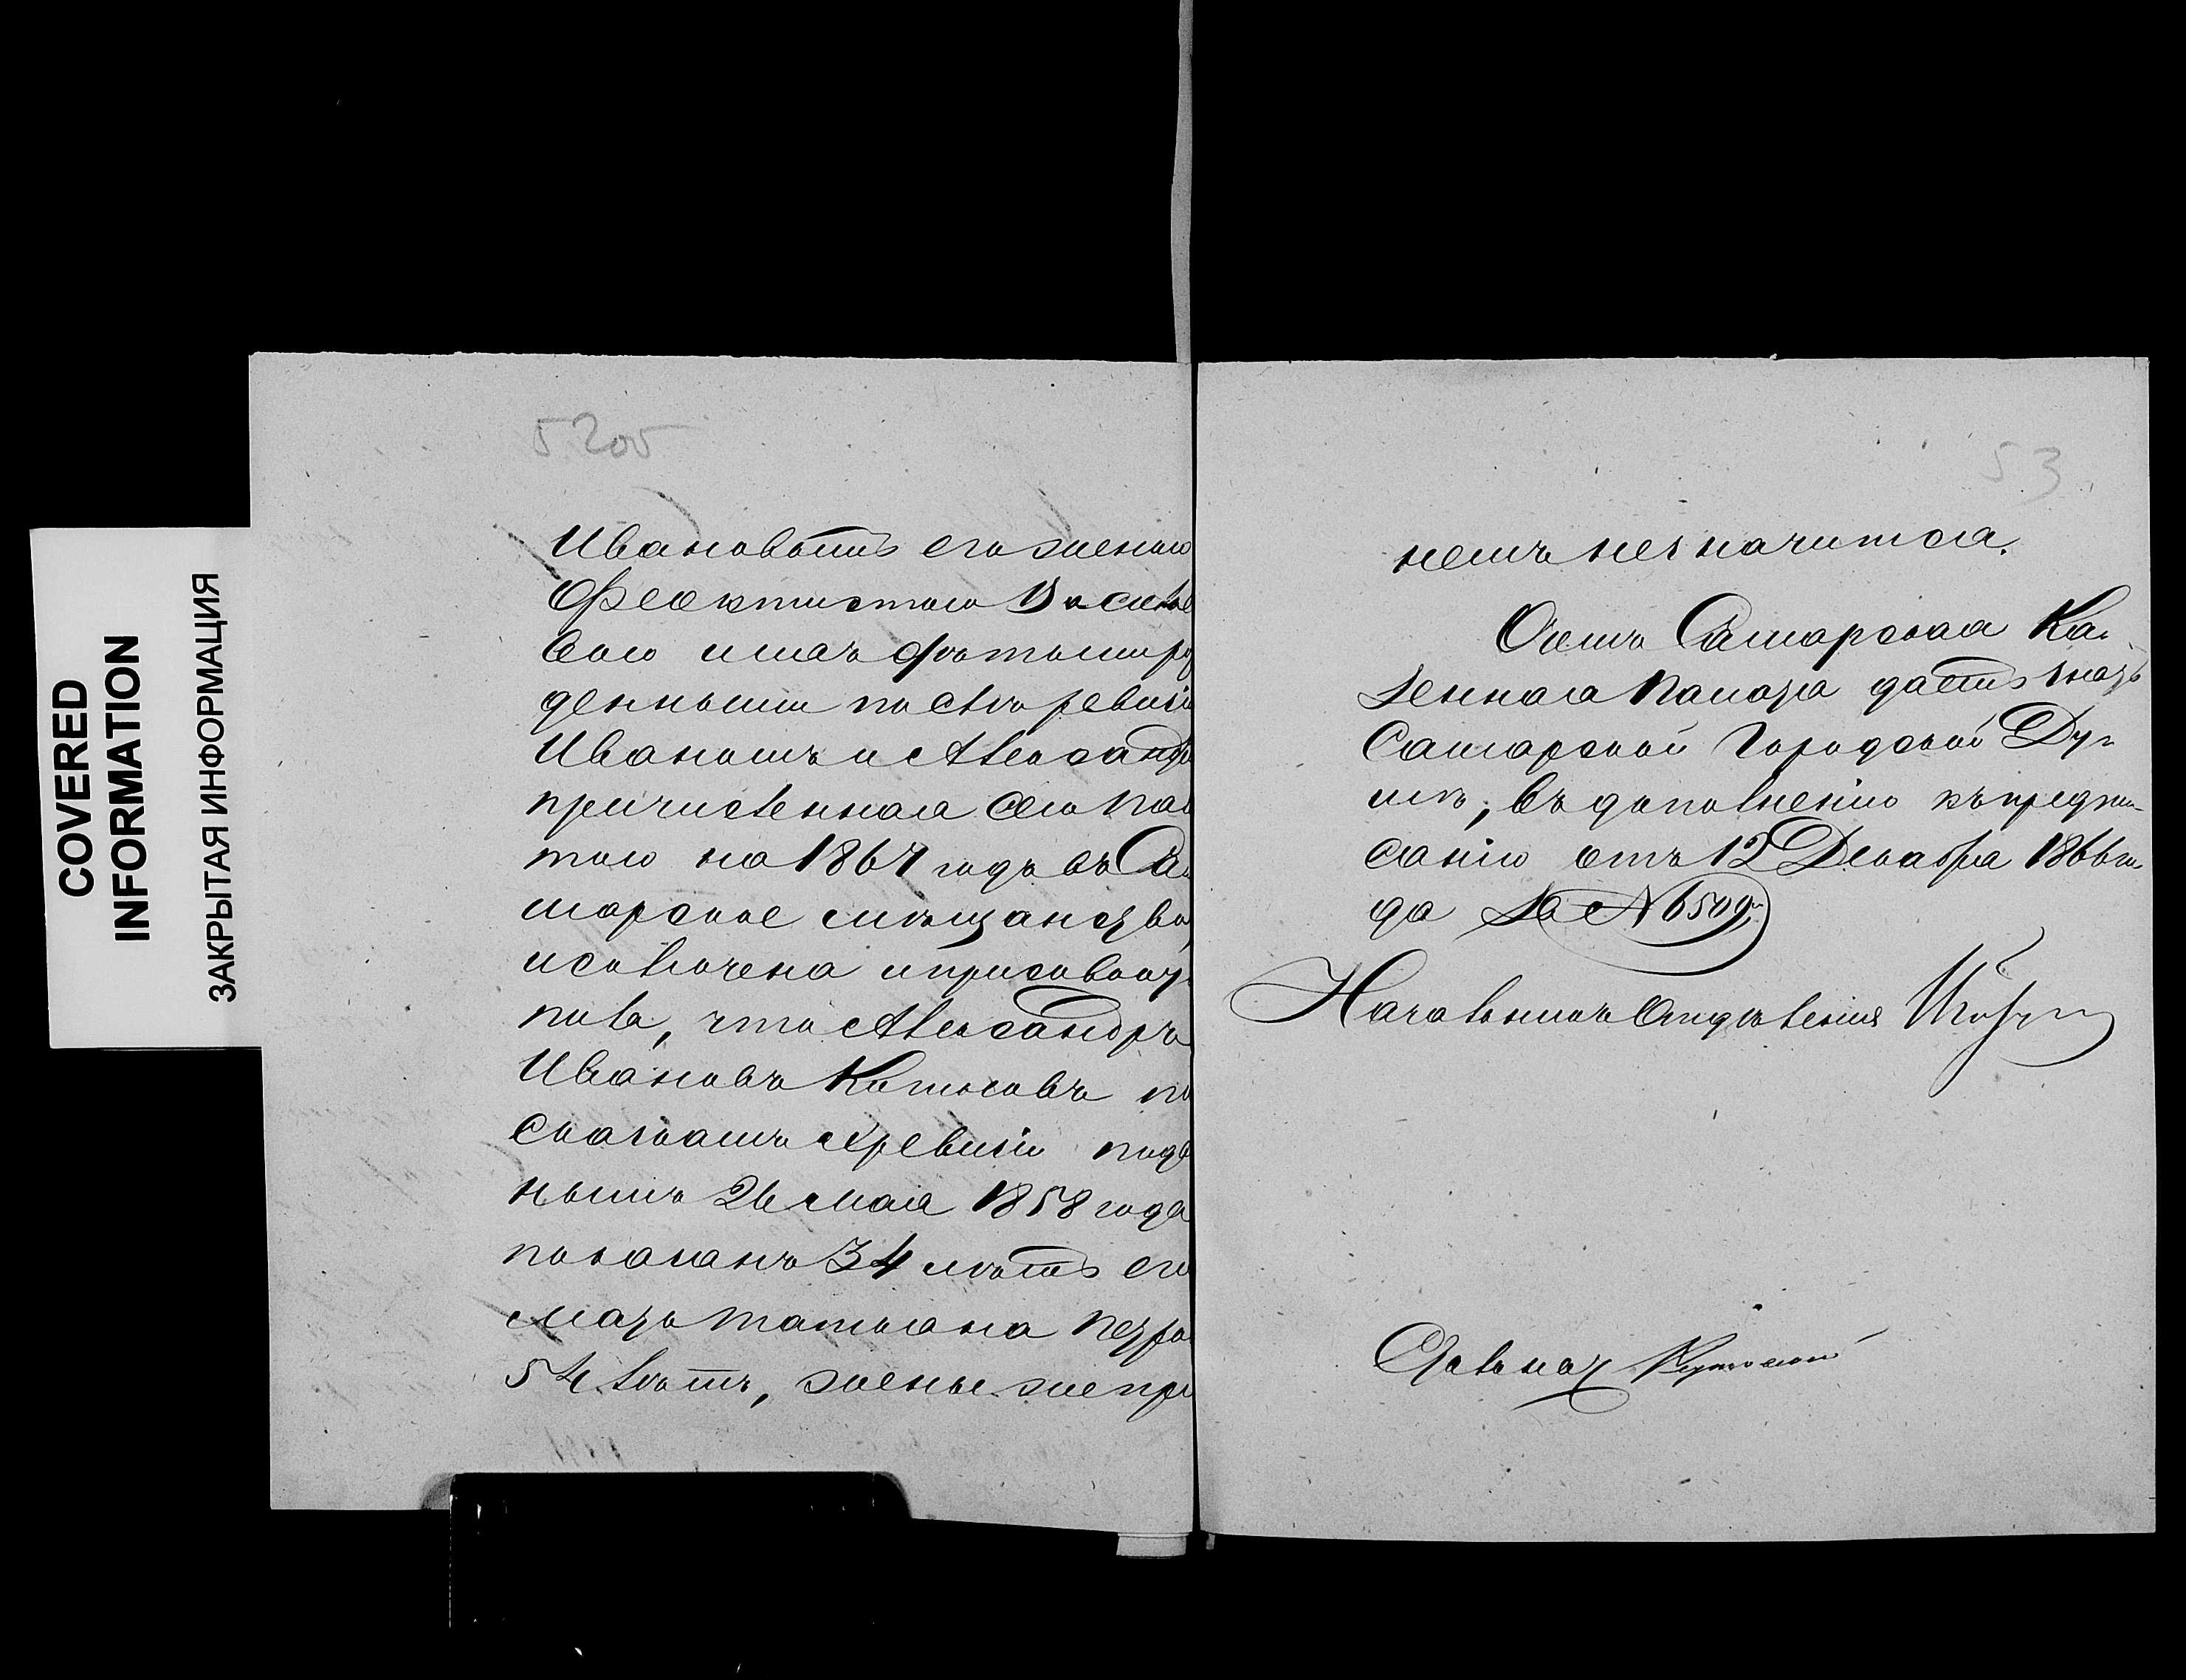 COVERED
INFORMATION
ЗАКРЫТАЯ ИНФОРМАЦИЯ
5205
Ивановымъ его женою
Феоктистою Василье
вою и ихъ дѣтьми ро
денными послѣ ревизіи
Иваномъ и Александр
причисленная сею пала
тою на 1867 годъ въ Са
марское мѣщанство,
исключена и присовоку
пивъ, что Александръ
Ивановъ по
сказкамъ X ревизіи под
нымъ 26 мая 1858 года
показанъ 34 лѣтъ его
мать Татьяна Петро
54 лѣтъ, жены же при
53
немъ не значится.
О семъ Самарская Ка-
зенная Палата даетъ знать
Самарской Городской Ду-
мѣ, въ дополненіе къ предпи-
санію отъ 12 Декабря 1866 го-
да за № 6509.
Начальникъ Отдѣленія